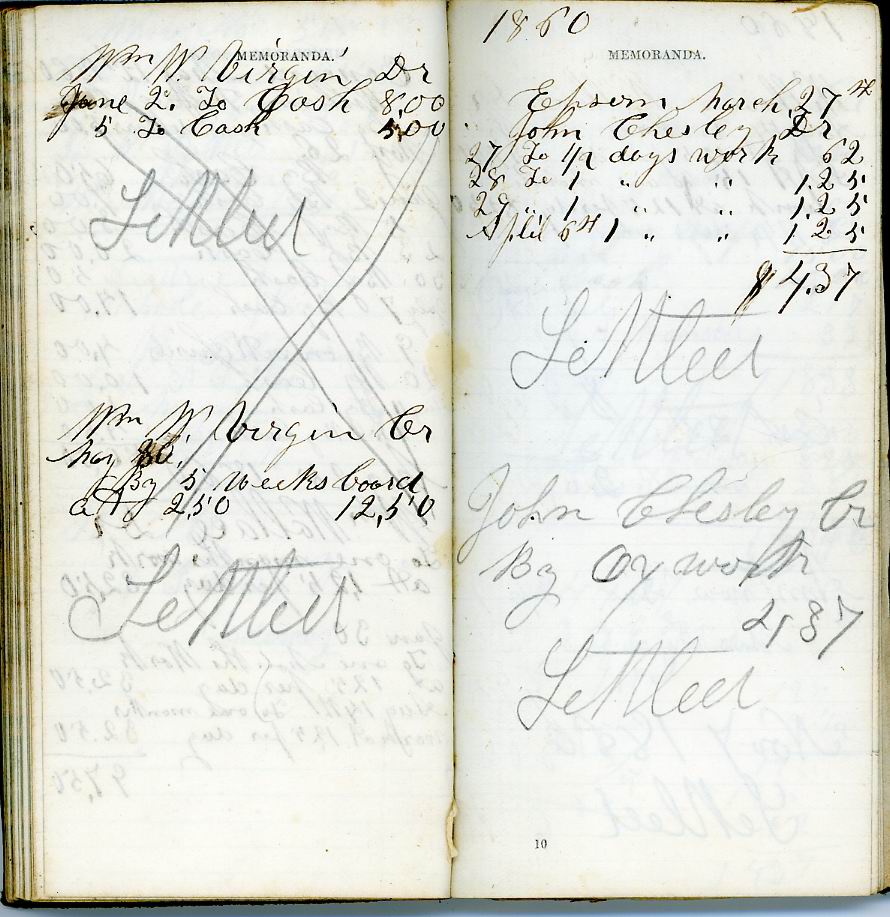 MEMORANDA.
Wm W. Virgin Dr
June 2. To Cash 8,00
5 To Cash 5,00
Settled
Wm W. Virgin Cr
May 30,
By 5 weeks board
at 2,50 12,50
Settled
1860
MEMORANDA.
Epsom March 27th
John Chesley Dr
27 To 1/2 days work 62
28 To 1 " " 1.25
29 " 1 " " 1.25
April 6th 1 " " 1 25
$ 4.37
Settled
John Chesley Cr
By Ox work
4 37
Settled
10